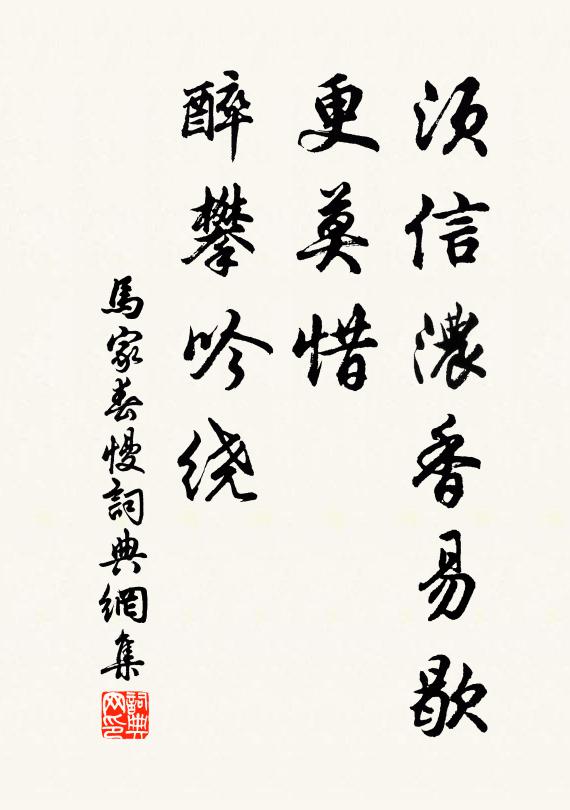 須信濃香易歇
更莫惜
醉攀吟繞
馬家春慢詞典網集
詞典网印